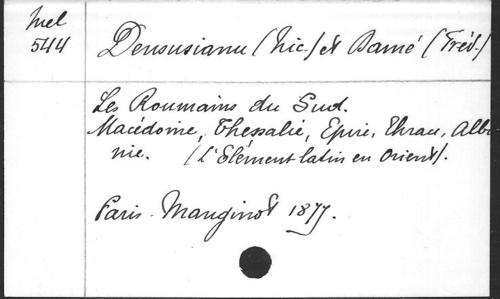 Mel
544
Densusianu (Nic.) et Damé (Fréd.)
Les Roumains du Sud.
Macédoine, Thessalie, Epire, Thrace, Alba
nie. (L'Elément latin en Orient).
Paris. Manginot 1877.